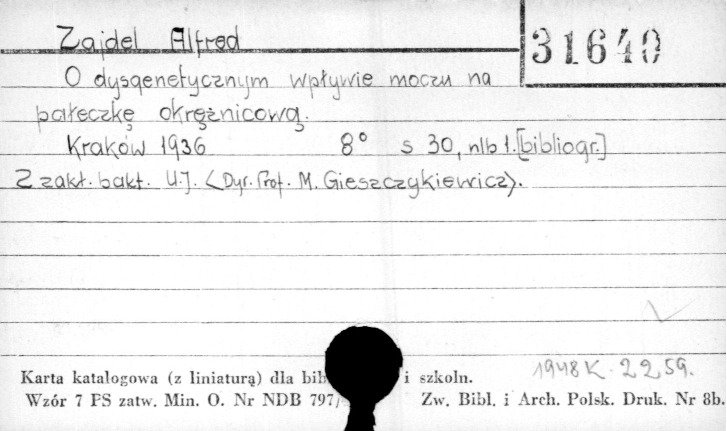 Zajdel Alfred
31640
O dysgenetycznym wpływie moczu na
pałeczkę okrężnicową.
Kraków 1936 8° s 30, nlb 1. [bibliogr.]
Z zakł. bakt. U.J. <Dyr. Prof. M. Gieszczykiewicz>.
1948 K. 22,59.
Karta katalogowa (z liniaturą) dla bib i szkoln.
Wzór 7 PS zatw. Min. O. Nr NDB 797/ Zw. Bibl. i Arch. Polsk. Druk. Nr 8b.